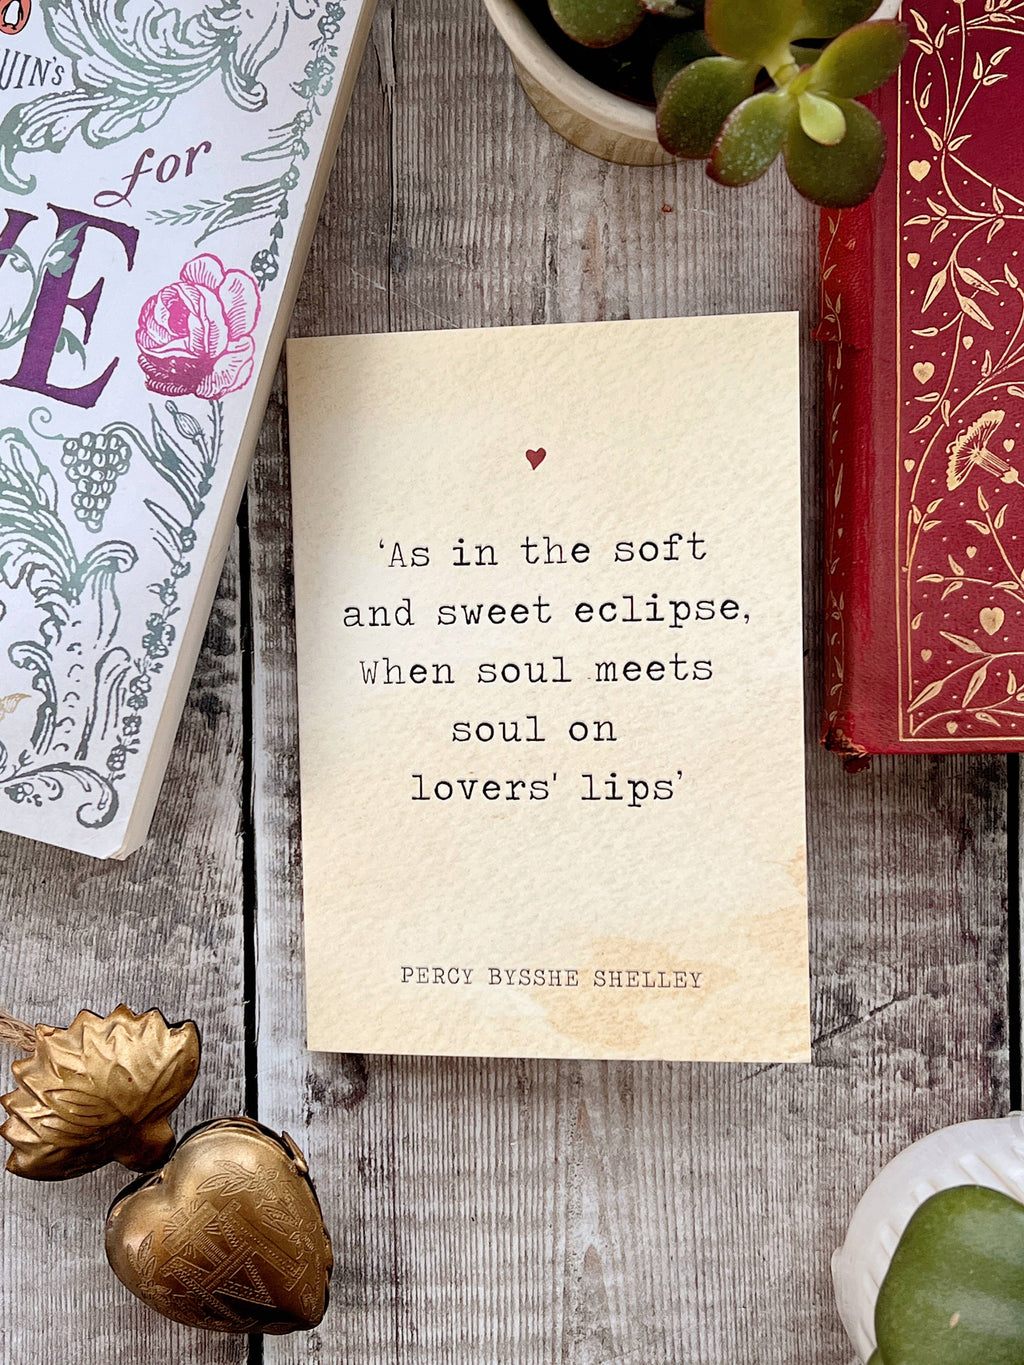 for
‘As in the soft
and sweet eclipse,
When soul meets
soul on
lovers' lips’
PERCY BYSSHE SHELLEY